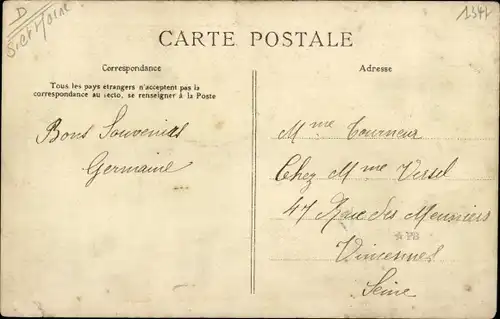 D
S. et Marne
CARTE POSTALE
Correspondance
Tous les pays étrangers n'acceptent pas la
correspondance au recto, se renseigner à la Poste
Bons Souvenirs
Germaine
Adresse
Mme Tourneur
Chez Mme Vessel
47 Rue des Meuniers
PB
Vincennes
Seine